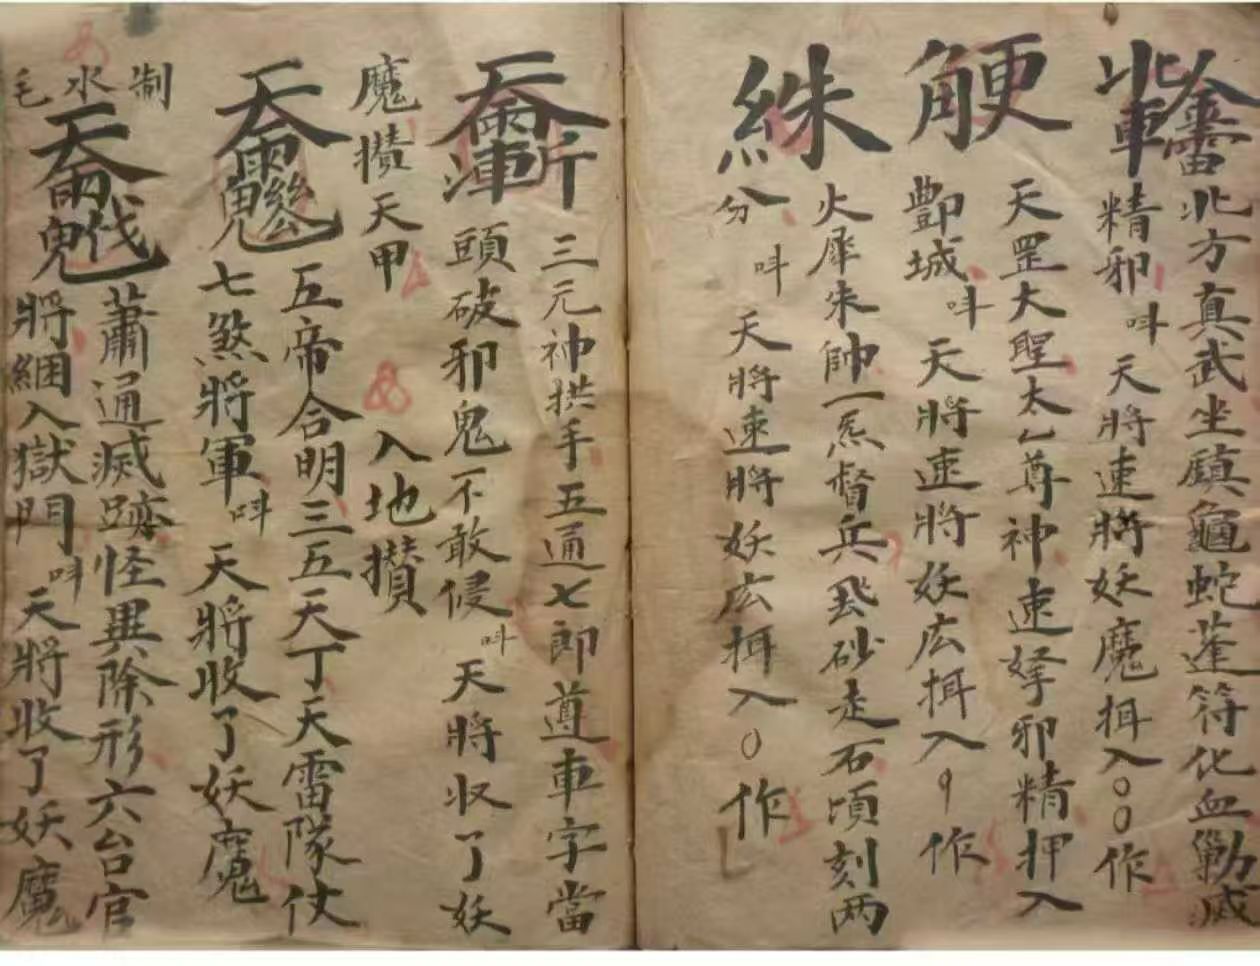 北方真武坐鎮龜蛇蓬符化血剿滅
精邪 呌 天將速將妖魔揖入〇〇作
天罡大聖太乙尊神速拏邪精押入
酆城 呌 天將速將妖庅揖入 作
火犀朱帥一炁督兵飛砂走石頃刻两
分 呌 天將速將妖庅揖入〇作
三元神拱手五通七郎尊車字當
頭破邪鬼不敢侵 呌 天將收了妖
魔攢 天甲 入地攢
五帝合明三五天丁天雷隊仗
七煞將軍 呌 天將收了妖魔
制水毛
蕭通滅跡怪異除形六台官
將綑入獄門 呌 天將收了妖魔